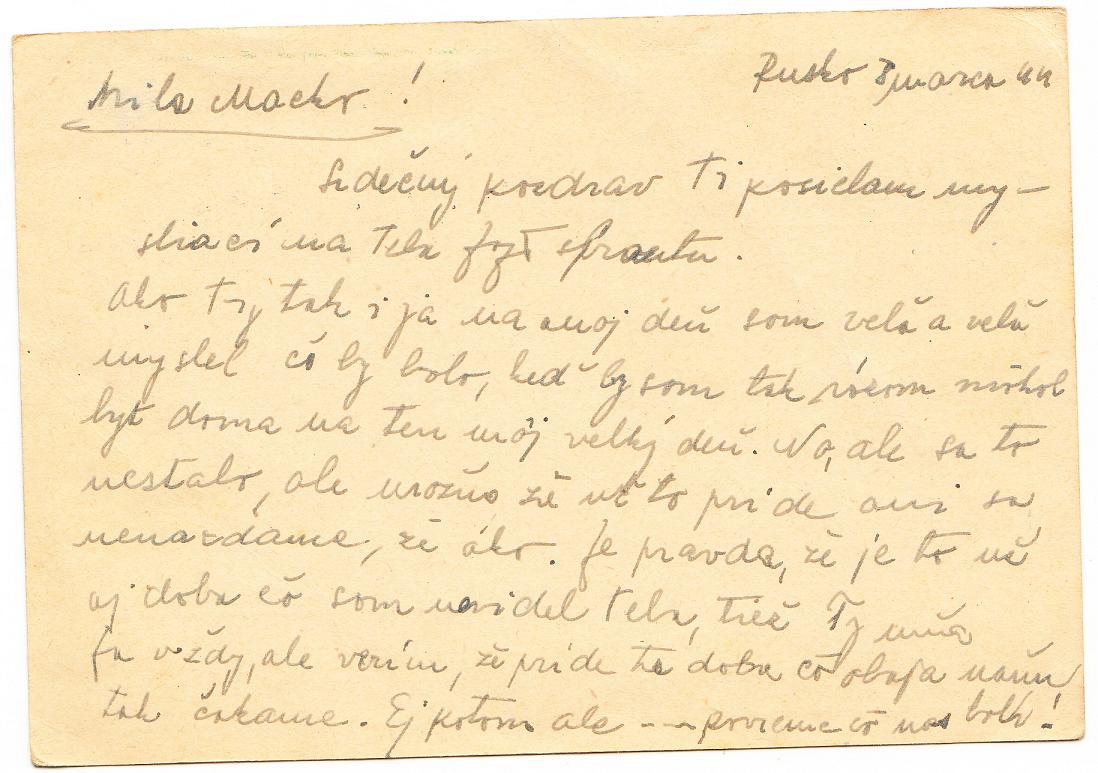 Rusko 8 marca 44
Milo Macko!
Srdečný pozdrav Ti posielam my-
sliaci na Teba
Ako Ty tak i ja na moj deň som veľa a veľa
myslel čo by bolo, keď by som tak rázom mohol
byt doma na ten môj velký deň. No, ale sa to
nestalo, ale možno že už to príde ani sa
nenazdáme, že ako. Je pravda, že je to už
aj doba čo som nevidel Teba, tiež Ty mňa
ja vždy, ale verím, že príde tá doba čo obaja naňu
tak čakame. Ej potom ale --- povieme čo nas bolí!